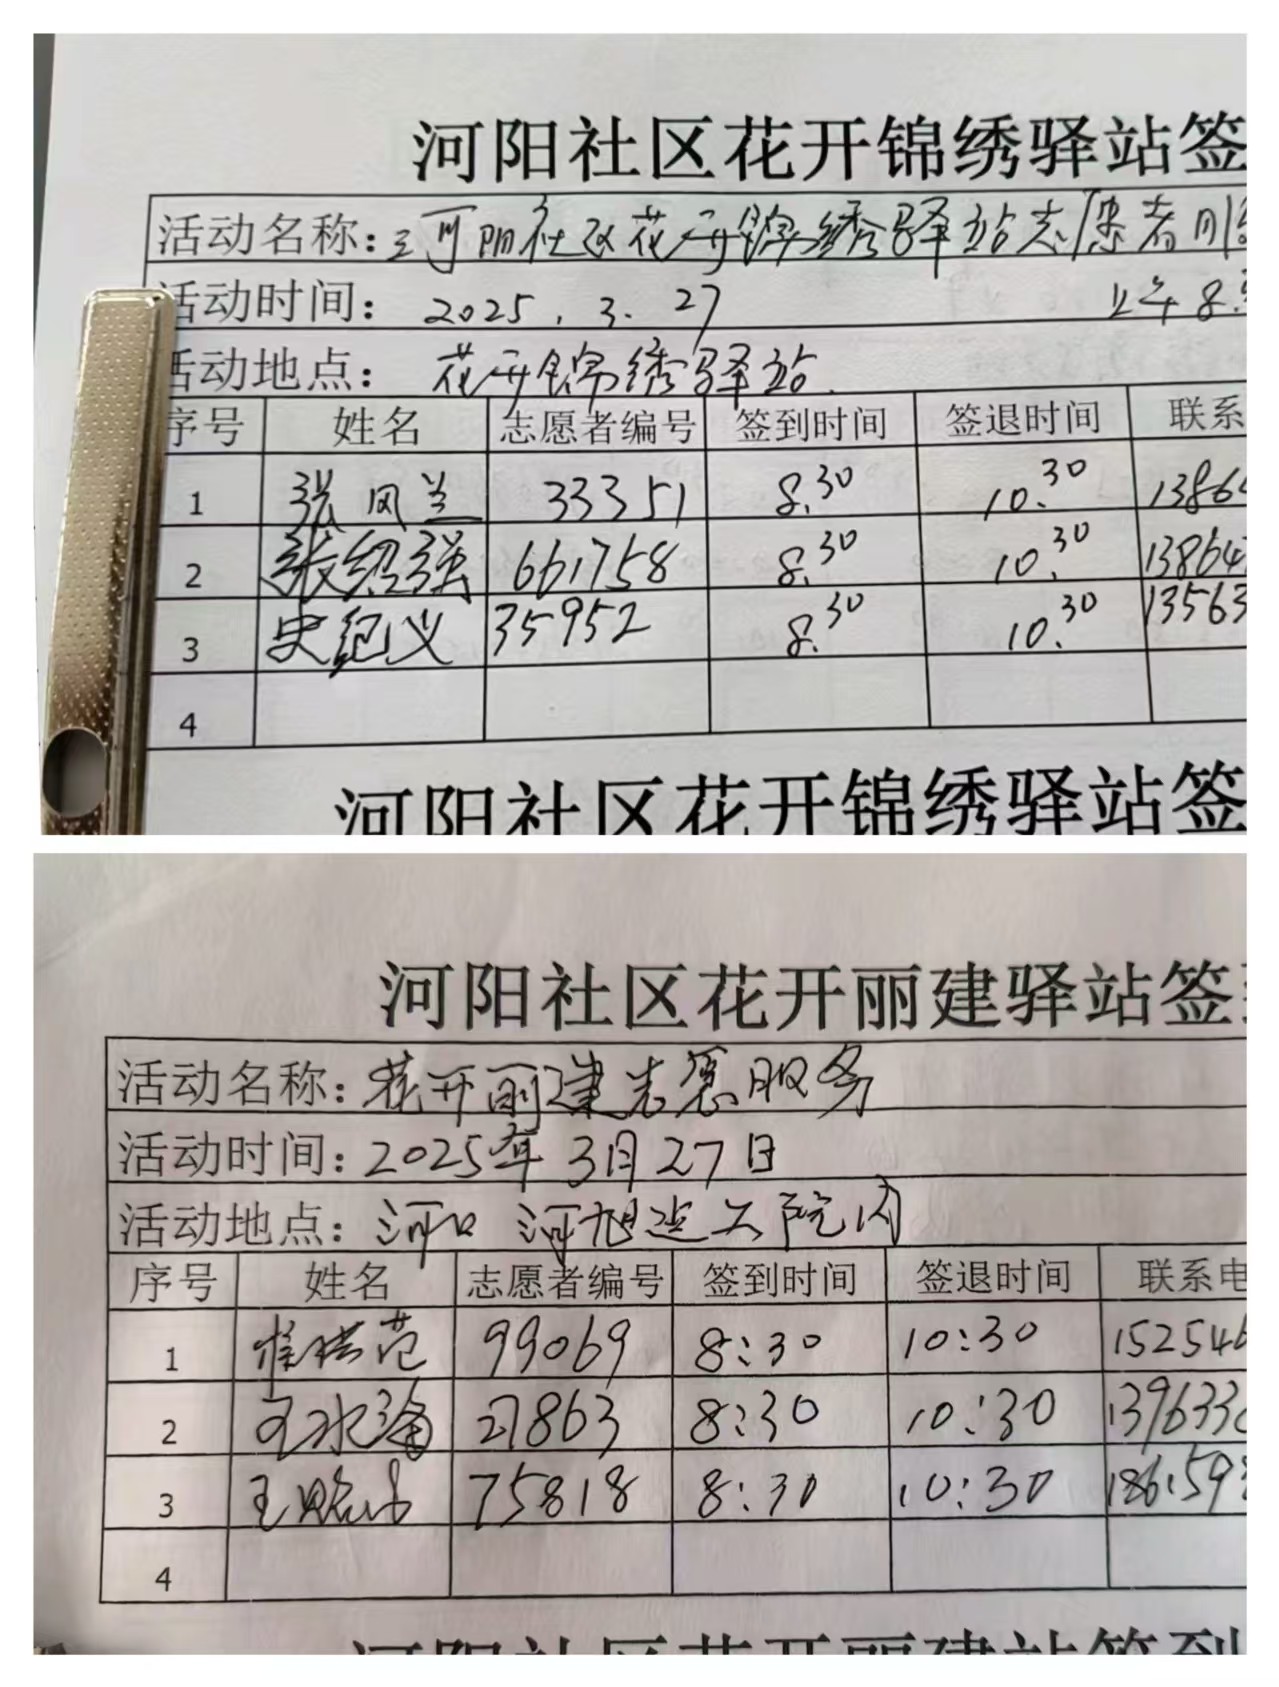 河阳社区花开锦绣驿站签
活动名称：河阳社区花开锦绣驿站志愿者服
活动时间： 2025.3.27 上午8:
活动地点： 花开锦绣驿站
序号 姓名 志愿者编号 签到时间 签退时间 联系
1 张凤兰 33351 8.30 10.30 1386
2 张绍强 661758 8.30 10.30 13864
3 史纪义 35952 8.30 10.30 13563
4
河阳社区花开锦绣驿站签
河阳社区花开丽建驿站签
活动名称：花开丽建志愿服务
活动时间：2025年3月27日
活动地点：河口 河旭边大院内
序号 姓名 志愿者编号 签到时间 签退时间 联系电
1 99069 8:30 10:30 152546
2 王水 863 8:30 10:30 139633
3 王 75818 8:30 10:30 186159
4
河阳社区花开丽建站签到